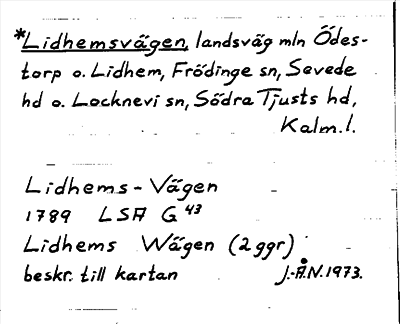 *Lidhemsvägen, landsväg mln Ödes-
torp o. Lidhem, Frödinge sn, Sevede
hd o. Locknevi sn, Södra Tjusts hd,
Kalm. l.
Lidhems-Vägen
1789 LSA G 43
Lidhems Wägen (2 ggr)
beskr. till kartan J.-Å.N. 1973.